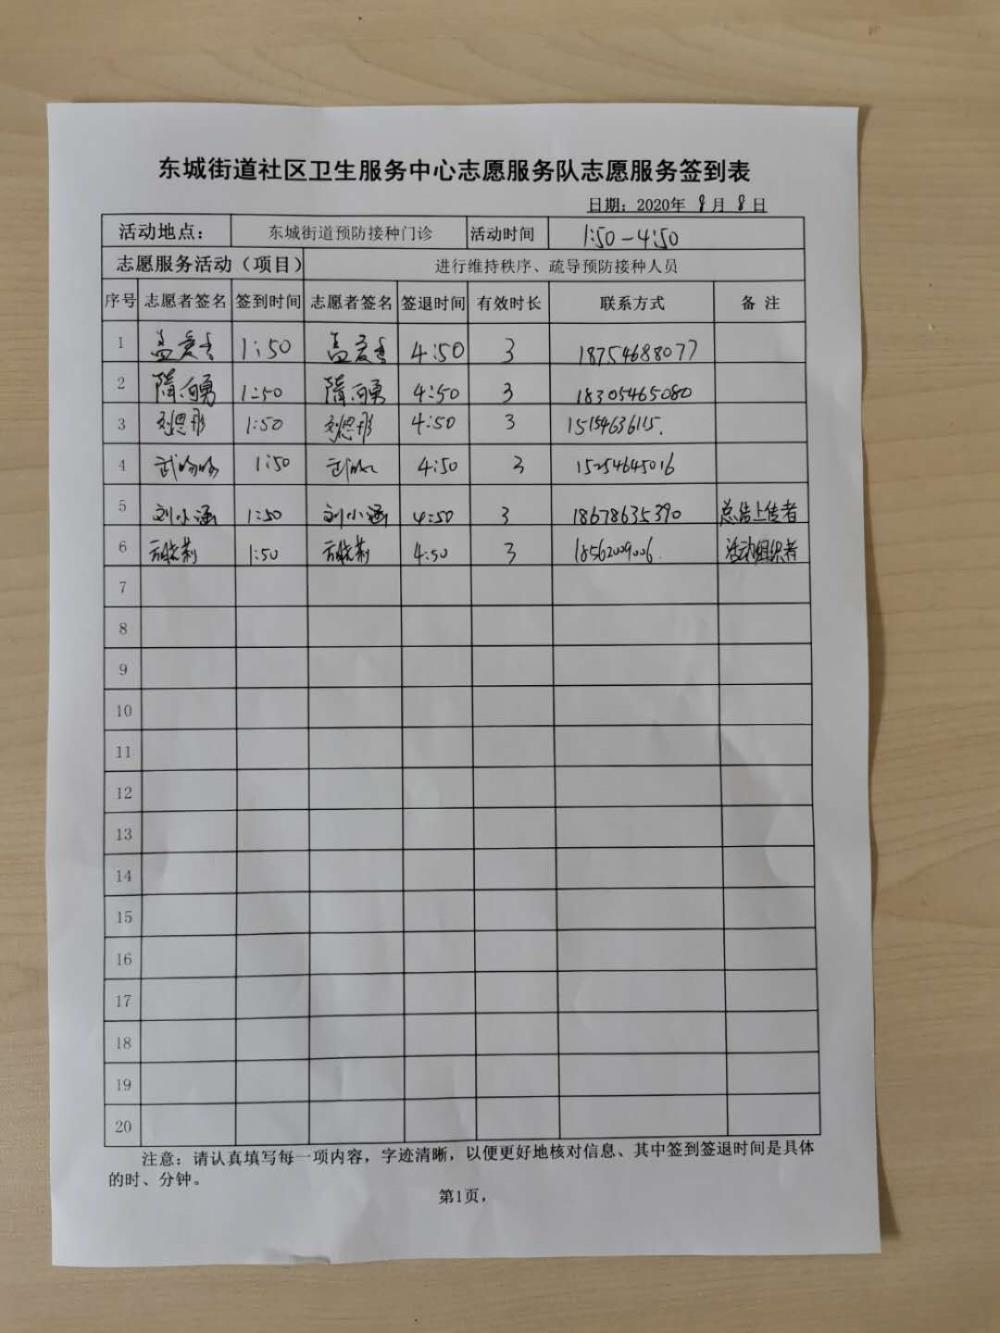 东城街道社区卫生服务中心志愿服务队志愿服务签到表
日期：2020年 8月 8日
活动地点： 东城街道预防接种门诊 活动时间 1:50-4:50
志愿服务活动（项目） 进行维持秩序、疏导预防接种人员
序号 志愿者签名 签到时间 志愿者签名 签退时间 有效时长 联系方式 备 注
1 1:50 4:50 3 18754688077
2 隋勇 1:50 隋勇 4:50 3 18305465080
3 刘思彤 1:50 刘思彤 4:50 3 15154636115.
4 1:50 4:50 3 15254645016
5 刘小涵 1:50 刘小涵 4:50 3 18678635390 总结上传者
6 1:50 4:50 3 18562009006. 活动组织者
7
8
9
10
11
12
13
14
15
16
17
18
19
20
注意：请认真填写每一项内容，字迹清晰，以便更好地核对信息、其中签到签退时间是具体
的时、分钟。
第1页，